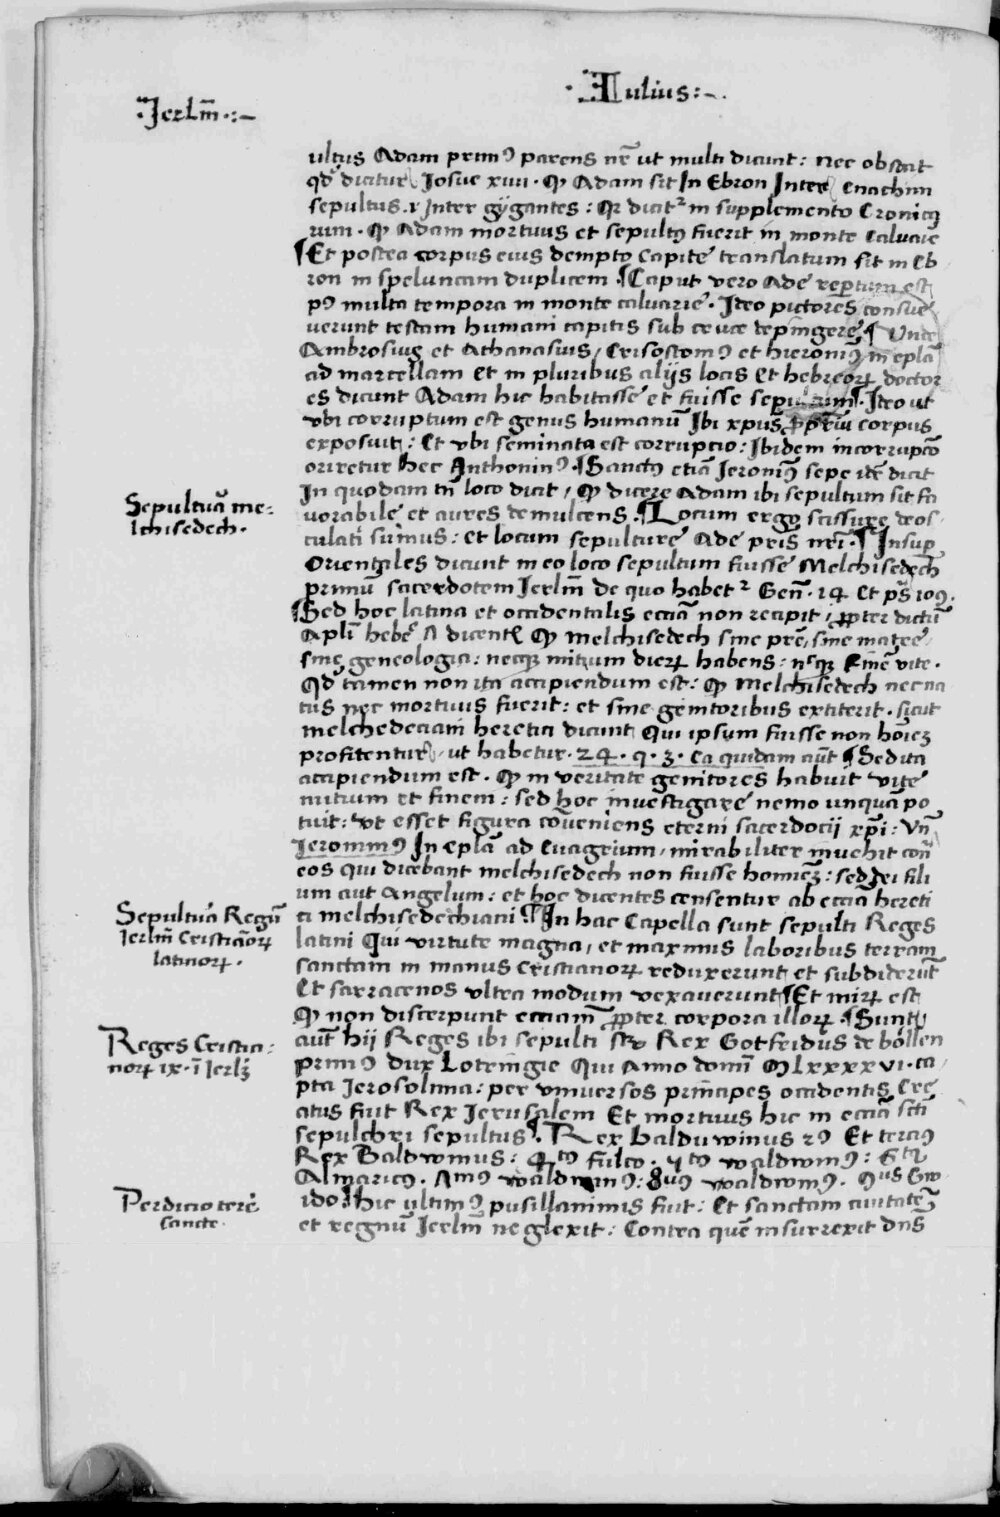 ·Iulius:-.
·Jerl̄m·:-
ultus Adam prim⁹ parens nr̄ ut multi dicunt: nec obstat
qd̓ dicitur Josue xiiii· Ꝙ Adam sit In Ebron Inter Enachim
sepultus .i. Inter gÿgantes: Qr̄ dicit᷑ in supplemento Cronicꝝ
rum· Ꝙ Adam mortuus et sepult⁹ fuerit in monte Caluarie
¶Et postea corpus eius dempto capite translatum sit in Eb
ron in speluncam duplicem· ¶Caput vero Ade repertum est
p⁹ multa tempora in monte caluarie· Ideo pictores consue
uerunt testam humani capitis sub cruce depingere ¶ Unde
Ambrosius et Athanasius, Crisostom⁹ et hieronim⁹ in epl̄a
ad marcellam et in pluribus alijs locis Et hebreoꝝ doctor
es dicunt Adam hic habitasse et fuisse sepultum¶· Ideo ut
vbi corruptum est genus humanū Ibi xpūs ꝓprium corpus
exposuit: Et vbi seminata est corrupcio: Ibidem incorrupcō
oriretur hec Anthonin⁹· ¶Sanctus etiā Jeronim⁹ sepe itē dicit
In quodam tn̄ loco dicit, Ꝙ dicere Adam ibi sepultum sit fa
uorabile et aures demulcens· ¶Locum ergo scissure deos
culati sumus: et locum sepulture Ade pris nr̄i· ¶Insup
Orientales dicunt in eo loco sepultum fuisse Melchisedech
primū sacerdotem Jerl̄m de quo habet᷑ Gen̄· 14 et ps̄ 109.
¶Sed hoc latina et occidentalis ecclia non recipit, ꝓpter dictū
apl̄i hebr̄ dicent Ꝙ melchisedech sine pre, sine matre,
sine geneologia: necꝫ initium dierꝝ habens: necꝫ finē vite·
Qd̄ tamen non ita accipiendum est: Ꝙ Melchisedech nec na
tus nec mortuus fuerit: et sine genitoribus extiterit· sicut
melchedeciani heretici dicunt Qui ipsum fuisse non hoīez
profitentur, ut habetur· 24· q· 3· ca quidam aūt ¶Sed ita
accipiendum est· Ꝙ in veritate genitores habuit vite
initium et finem: sed hoc inuestigare nemo unquā po
tuit: vt esset figura cōueniens eterni sacerdocij xp̄i: Vn̄
Jeronim⁹ In epl̄a ad Euagrium, mirabiliter inuehit con̄
eos qui dicebant melchisedech non fuisse hominez: sed dei fili
um aut angelum: et hoc dicentes censentur ab ecclia hereti
ci melchisedechiani· ¶In hac Capella sunt sepulti Reges
latini Qui virtute magna, et maximis laboribus terram
sanctam in manus Cristianoꝝ reduxerunt et subdiderūt
Et sarracenos ultra modum vexauerunt ¶Et mirꝝ est
Ꝙ non discerpunt ecclam ꝓpter corpora illoꝝ· ¶Sunt
aūt hij Reges ibi sepulti Rex Gotfridus de bollen
prim⁹ dux Lotringie Qui Anno domini Mlxxxxvi· ca
pta Jerosolima: per vniuersos principes occidentis Cre
atus fuit Rex Jerusalem Et mortuus hic in ecclia scti
sepulchri sepultus¶· Rex balduwinus 2⁹ Et tercius
Rex Baldwinus: 4ᵗᵘˢ fulco· waldwin⁹: 6ᵗᵘˢ
Almaricus. waldwin⁹: 8uus waldwin⁹. Gwi
ido hic ultim⁹ pusillanimis fuit: Et sanctam ciuitatē
et regnū Jerl̄m neglexit: Contra quē insurrexit dn̄s
Sepultura me=
lchisedech·
Sepultura Regū
Jerl̄m Cristianoꝝ
latinoꝝ·
Reges Cristia:
noꝝ ix· i Jerlꝫ
Perdicio terre
sancte·